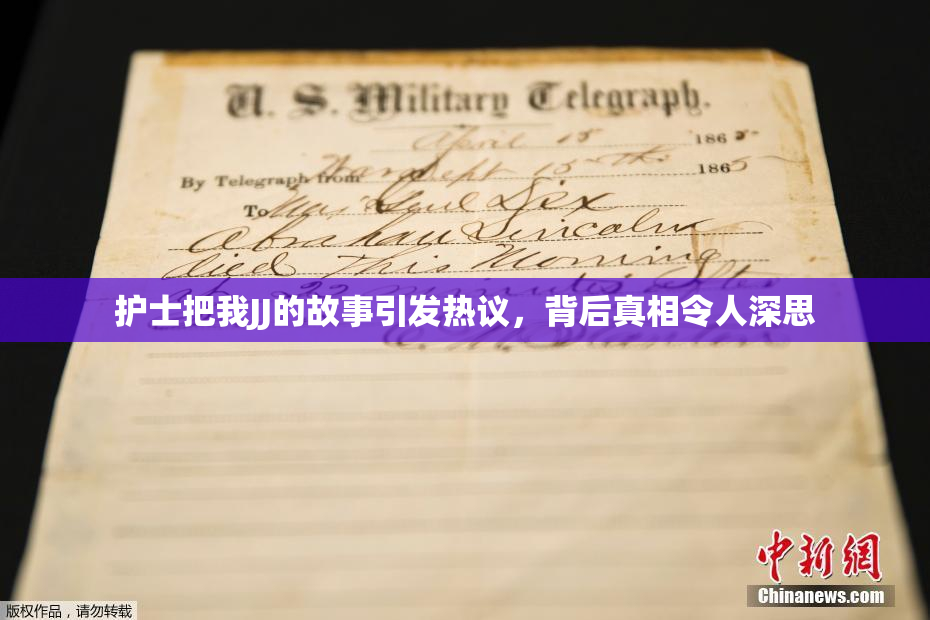 U. S. Military Telegraph.
April 15 1865
By Telegraph from War Dept 15th 1865
To Maj Genl Dix
Abraham Lincoln
died this Morning
at 22 minutes after
护士把我JJ的故事引发热议，背后真相令人深思
E. M. Stanton
中新網
Chinanews.com
版权作品，请勿转载